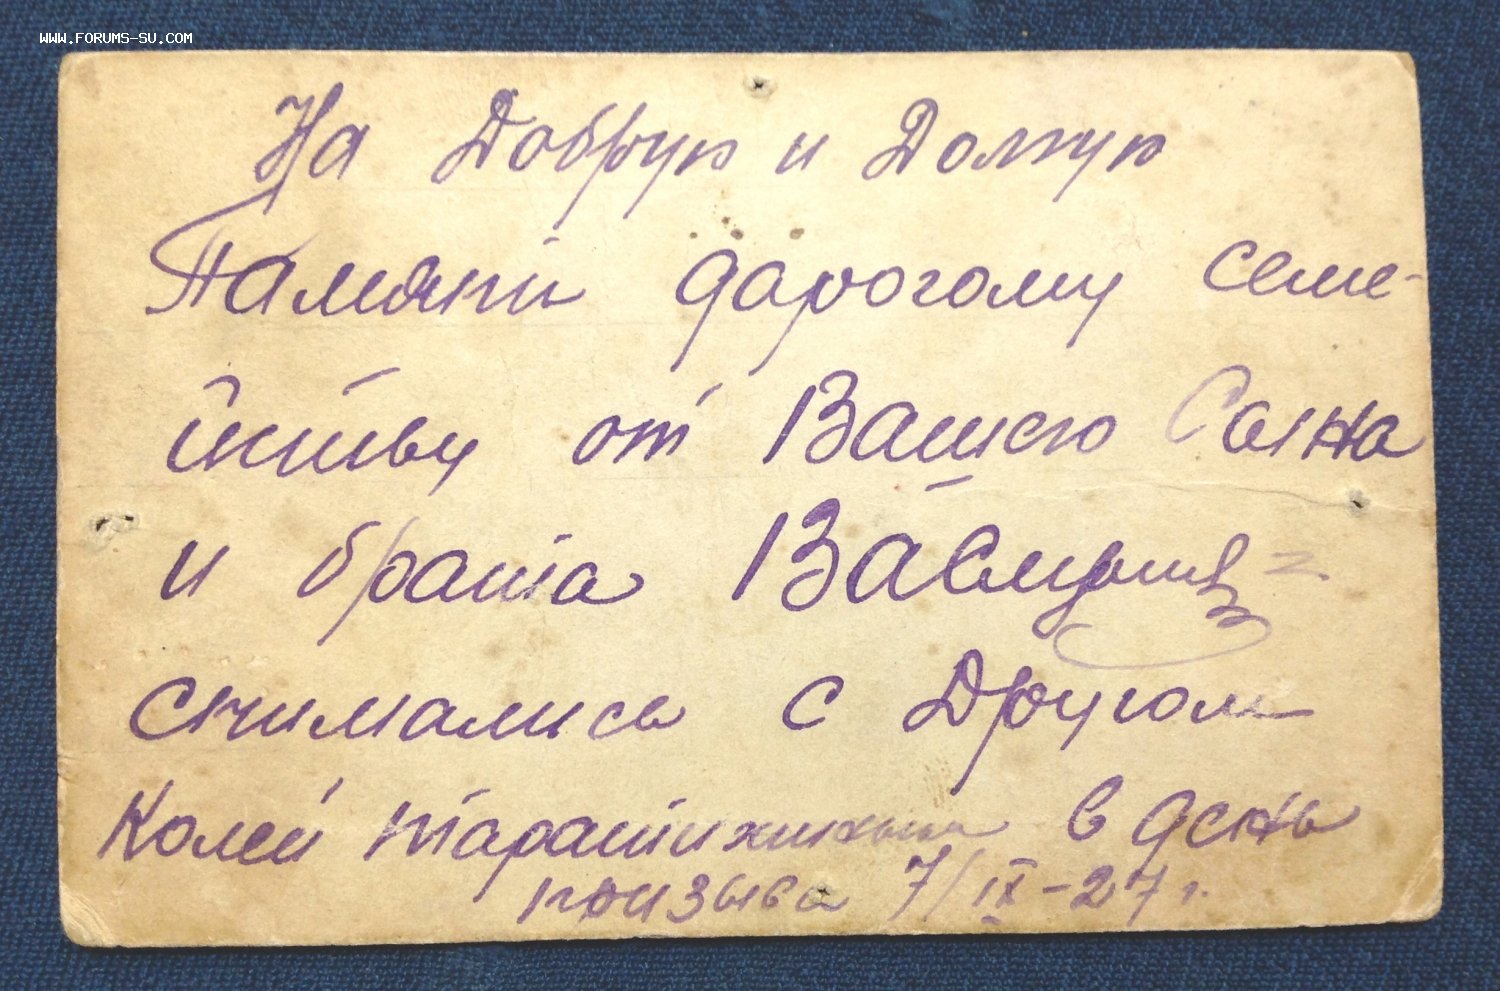 WWW.FORUMS-SU.COM
На Добрую и Долгую
Памяти дорогому семе-
йству от Вашего Сына
и брата
снимались с Другом
Колей в день
призыва 7/IX-27 г.